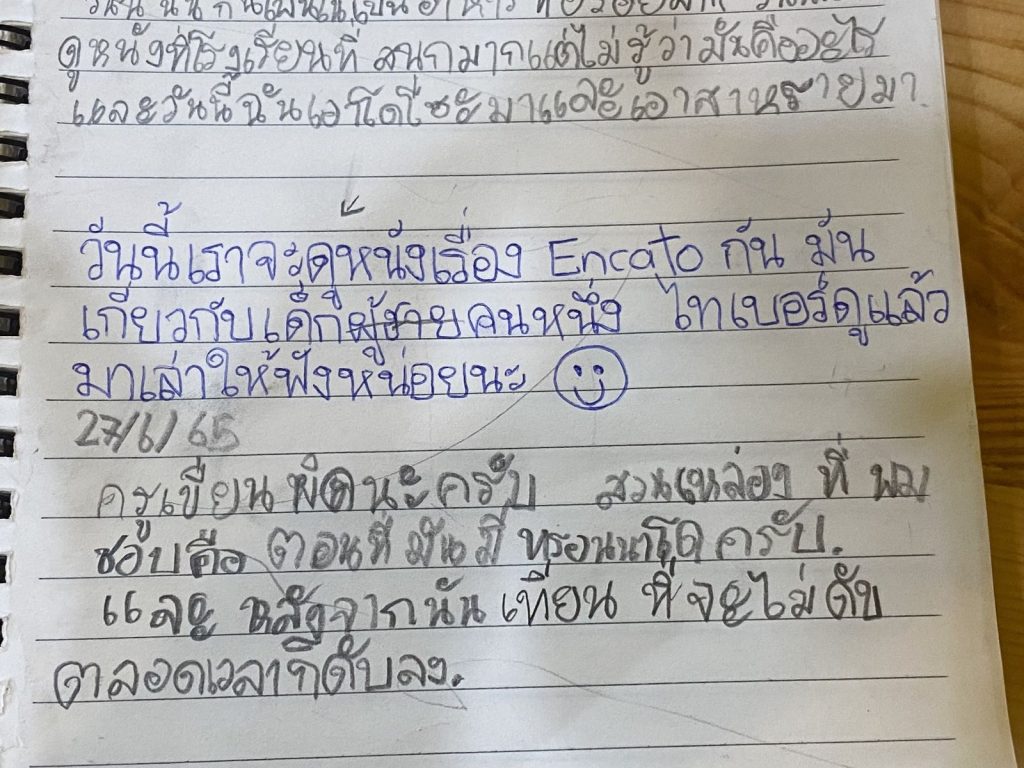 ดูหนังที่โรงเรียนที่ สนกมากแต่ไม่รู้ว่ามันคืออะไร
และวันนี้ฉันเอา มาและเอาสาหร่ายมา.
วันนี้เราจะดูหนังเรื่อง Encato กัน มัน
เกี่ยวกับเด็กผู้ชายคนหนึ่ง ไทเบอร์ดูแล้ว
มาเล่าให้ฟังหน่อยนะ
27/6/65
ครูเขียนผิดนะครับ สวนเหล่อง ที่ พม
ชอบคือ ตอนที่มันมี ครับ.
และ หลังจากนัน เทียน ที่จะไม่ดับ
ตลอดเวลาก็ดับลง.